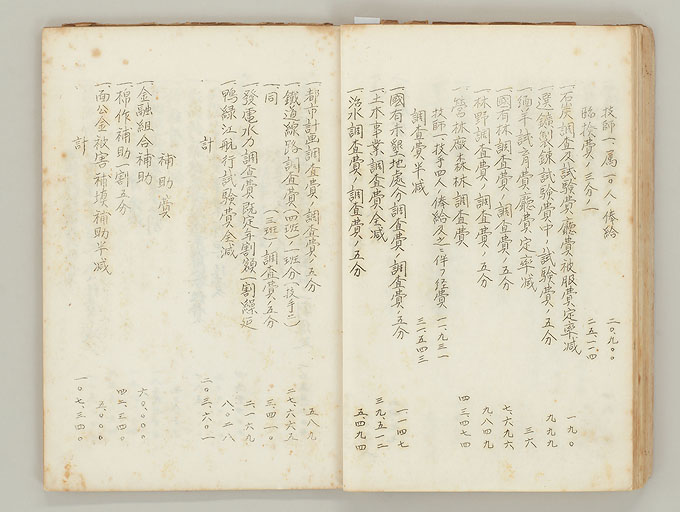 技師一、属一〇人ノ俸給 二〇、九〇〇
臨検費ノ三分ノ一 二五、一一四
一、石炭調査及試験費、廳費被服費定率減 一九〇
一、選鑛製錬試験費中ノ試験費ノ五分 九九九
一、緬羊試育費、廳費定率減 三六
一、國有林調査費ノ調査費ノ五分 七、六九六
一、林野調査費ノ調査費ノ五分 九、八四九
一、營林廠森林調査費 四三、四七四
技師一、技手四人ノ俸給及之ニ伴フ経費 一一、九三一
調査費半減 三一、五四三
一、國有未墾地處分調査費ノ調査費ノ五分 一、一四七
一、土木事業調査費全減 三九、五一二
一、治水調査費ノ調査費ノ五分 五、四九四
一、都市計畫調査費ノ調査費ノ五分 五八九
一、鐵道線路調査費(四班)ノ一班分(技手二) 二七、六六五
一、同 (三班)調査費ノ五分 三、四一〇
一、發電水力調査費既定年割額一割繰延 二、一六九
一、鴨緑江航行試験費全減 八、〇二八
計 二〇三、六〇一
補助費
一、金融組合補助 六〇、〇〇〇
一、棉作補助一割五分 四二、三四〇
一、面公金被害補塡補助半減 五、〇〇〇
計 一〇七、三四〇